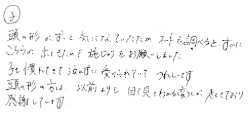 子
頭の形がずっと気になっていたため ネットで調べると すぐに
こちらが出てきたので 施術をお願いしました
子も慣れてきて泣かずに受けられていて うれしいです
頭の形の方は、以前よりも 目で見てわかる変化が 出てきており
感謝しています